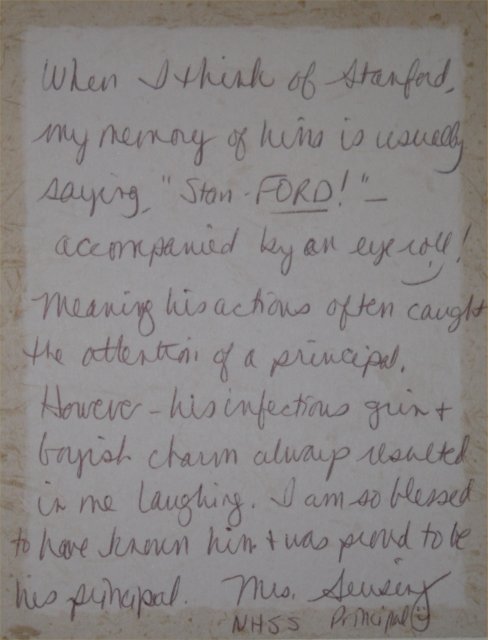 When I think of Stanford,
my memory of him is usually
saying, "Stan-FORD!" –
accompanied by an eye roll!
Meaning his actions often caught
the attention of a principal.
However – his infectious grin +
boyish charm always resulted
in me laughing. I am so blessed
to have known him + was proud to be
his principal. Mrs. Sensing
NHSS Principal